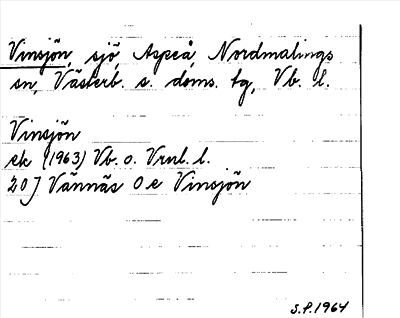 Vinsjön, sjö, Aspeå, Nordmalings
sn, Västerb. s. doms. tg, Vb. l.
Vinsjön
ek (1963) Vb. o. Vrnl. l.
20 J Vännäs O e Vinsjön
S.P. 1964